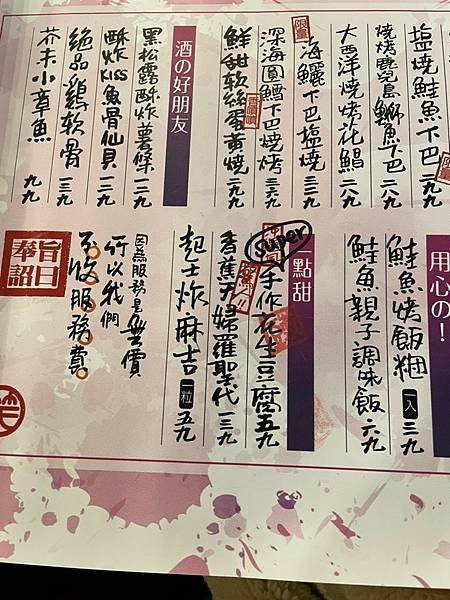 塩燒鮭魚下巴 二九九
燒烤鹿兒島鰤魚下巴 二八九
大西洋燒烤花鯛 二八九
限量
海鱺下巴塩燒 三三九
深海圓鱈下巴燒烤 三三九
鮮甜軟絲蛋黃燒 二九九
酒の好朋友
黑松露酥炸薯條 一二九
酥炸KISS魚骨仙貝 一三九
絕品鷄軟骨 一三九
芥末小章魚 九九
用心の!
鮭魚烤飯糰 一入 三九
鮭魚親子調味飯 六九
一點甜
super
手作花生豆腐 五九
香蕉天婦羅聖代 一三九
起士炸麻吉 一粒 五九
因為服務是無價
所以我們
不收服務費
奉旨
詔曰
笑